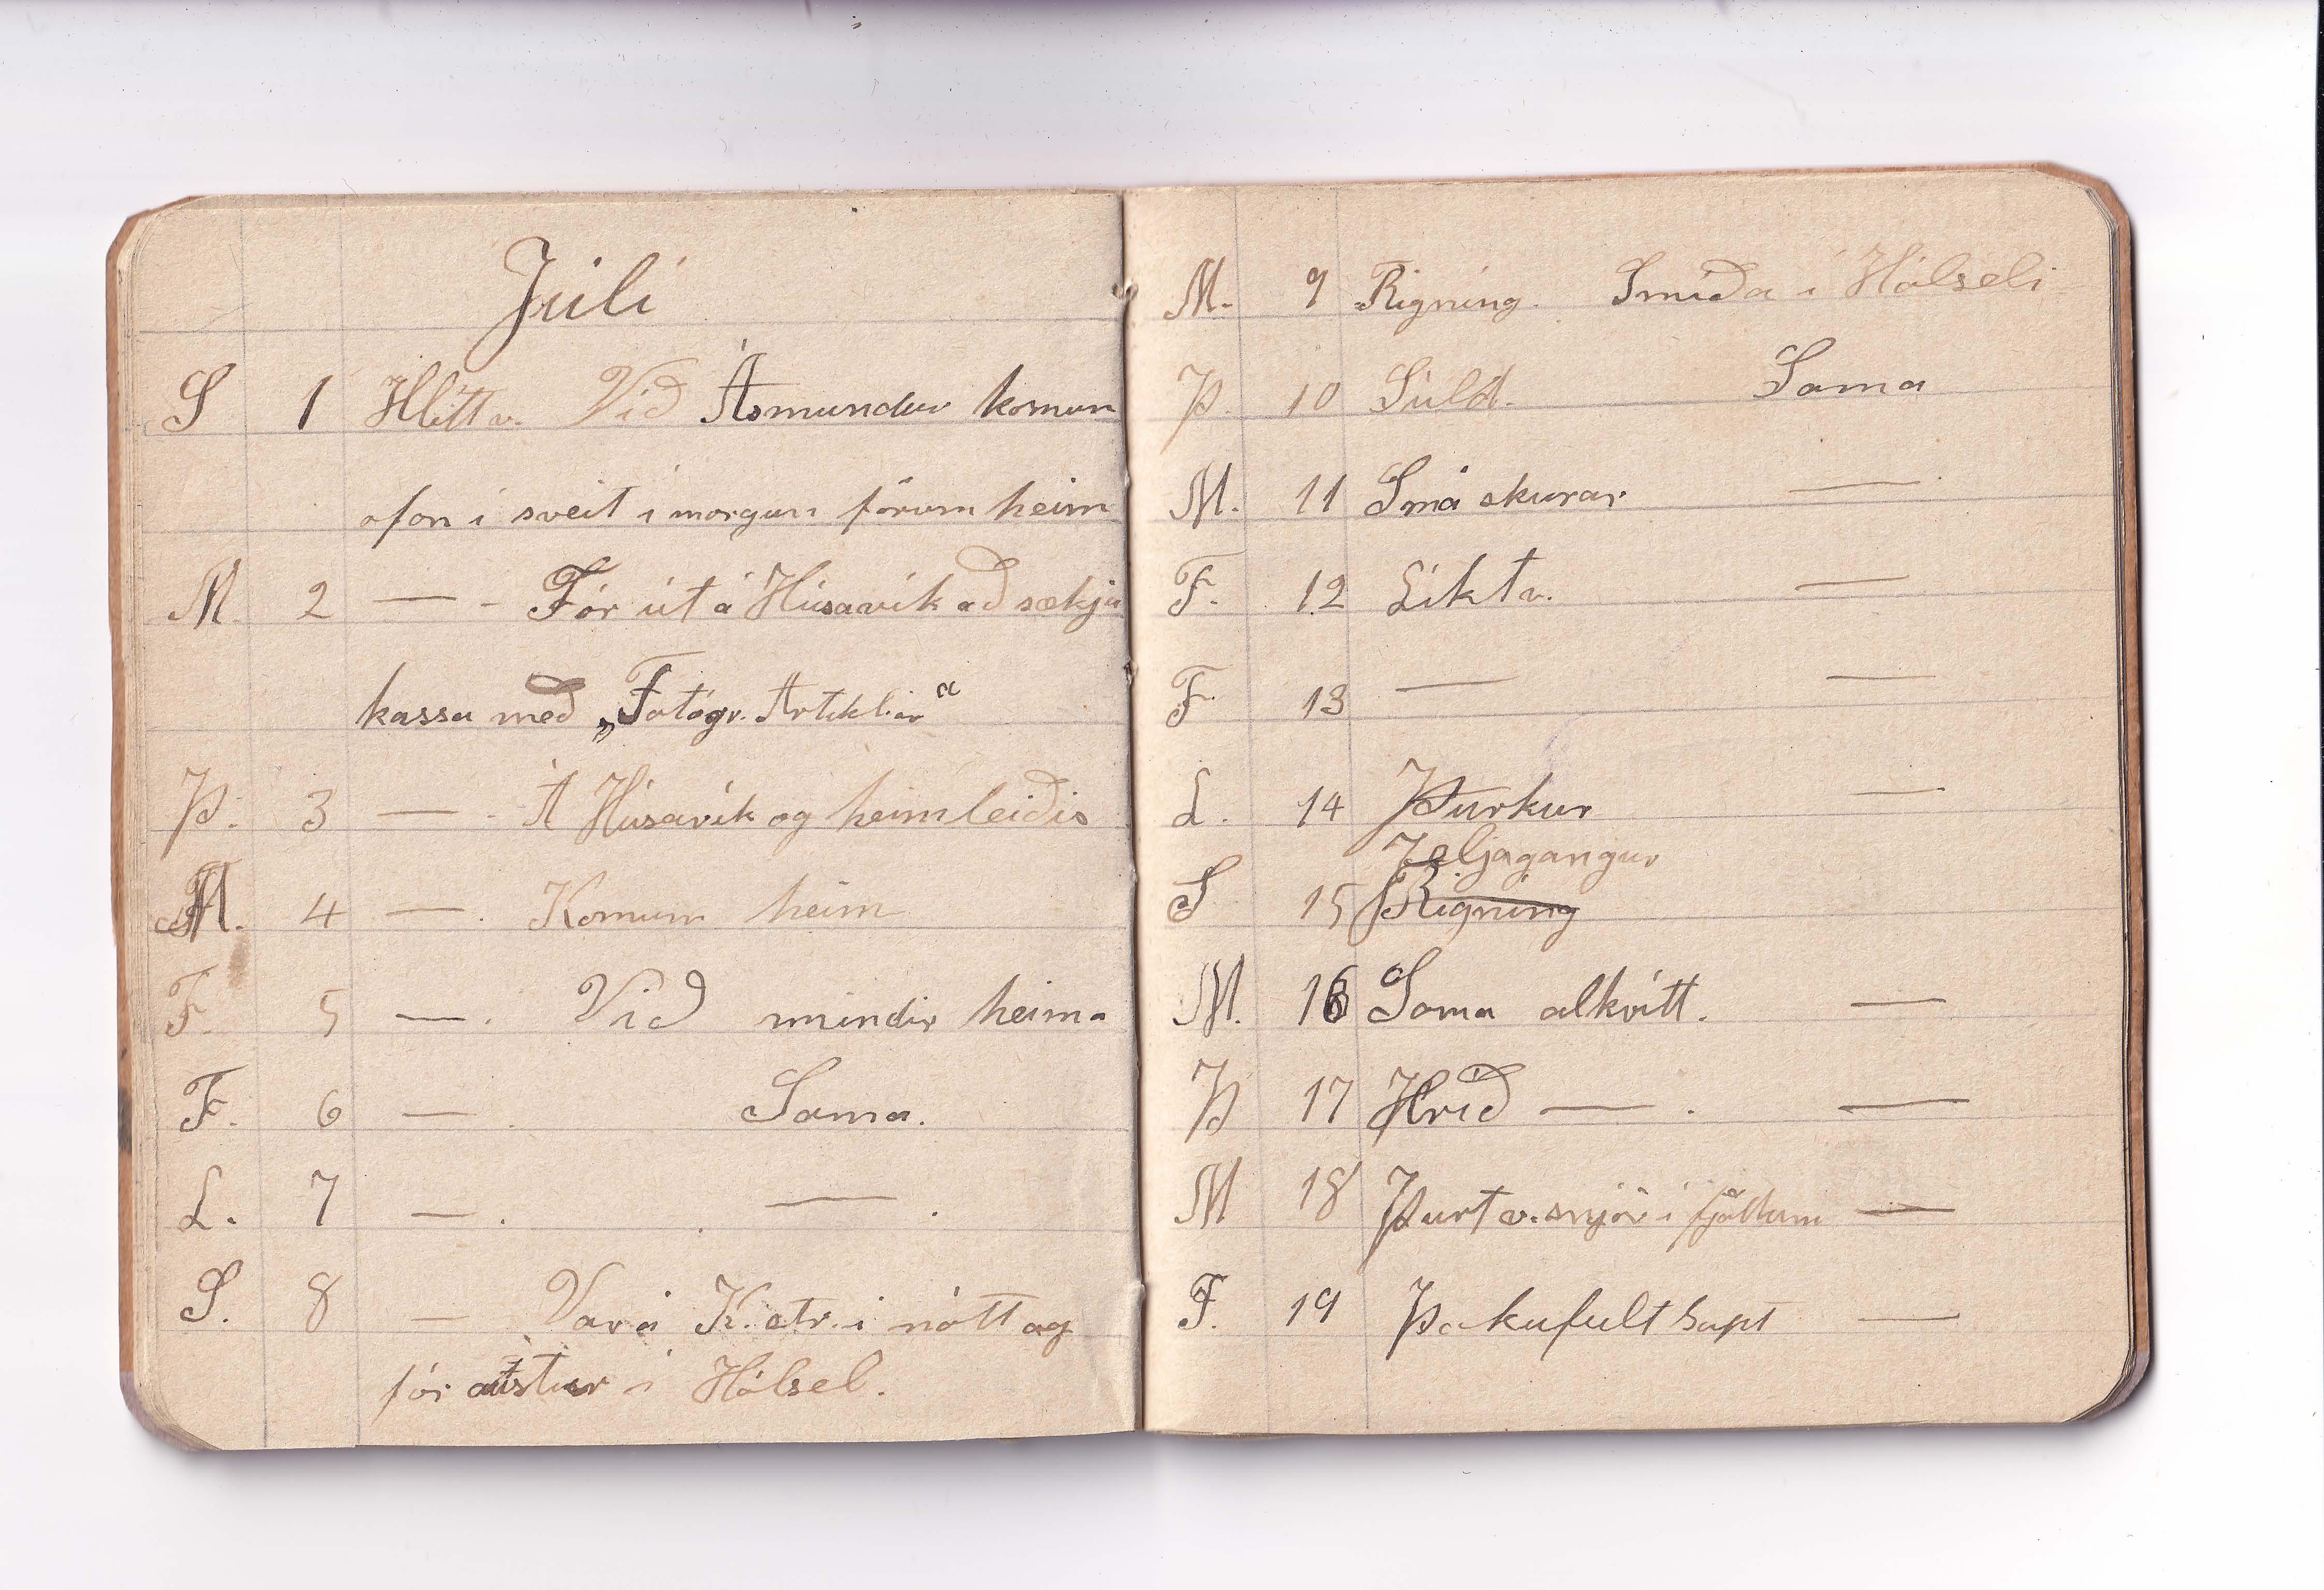 Júlí
S 1 Hlítt v. Við Ásmundur komum
ofan í sveit í morgun fórum heim
M. 2 — - Fór út á Húsavík að sækja
kassa með „Fotógr. Artiklar“
Þ. 3 — - Á Húsavík og heimleiðis
M. 4 — . Komum heim
F. 5 — . Við mindir heima
F. 6 — . Sama.
L. 7 — . — .
S. 8 — Var á K. str. í nótt og
fór austur í Hólsel.
M. 9 Rigning. Smíða í Hólseli
Þ. 10 Súld. Sama
M. 11 Smá skurar —
F. 12 Líkt v. —
F. 13 — —
L. 14 Þurkur —
Jeljagangur
S 15 Rigning
M. 16 Sama alkvítt. —
Þ 17 Hríð — . —
M 18 Þurt v. snjór í fjöllum —
F. 19 Þokufult —